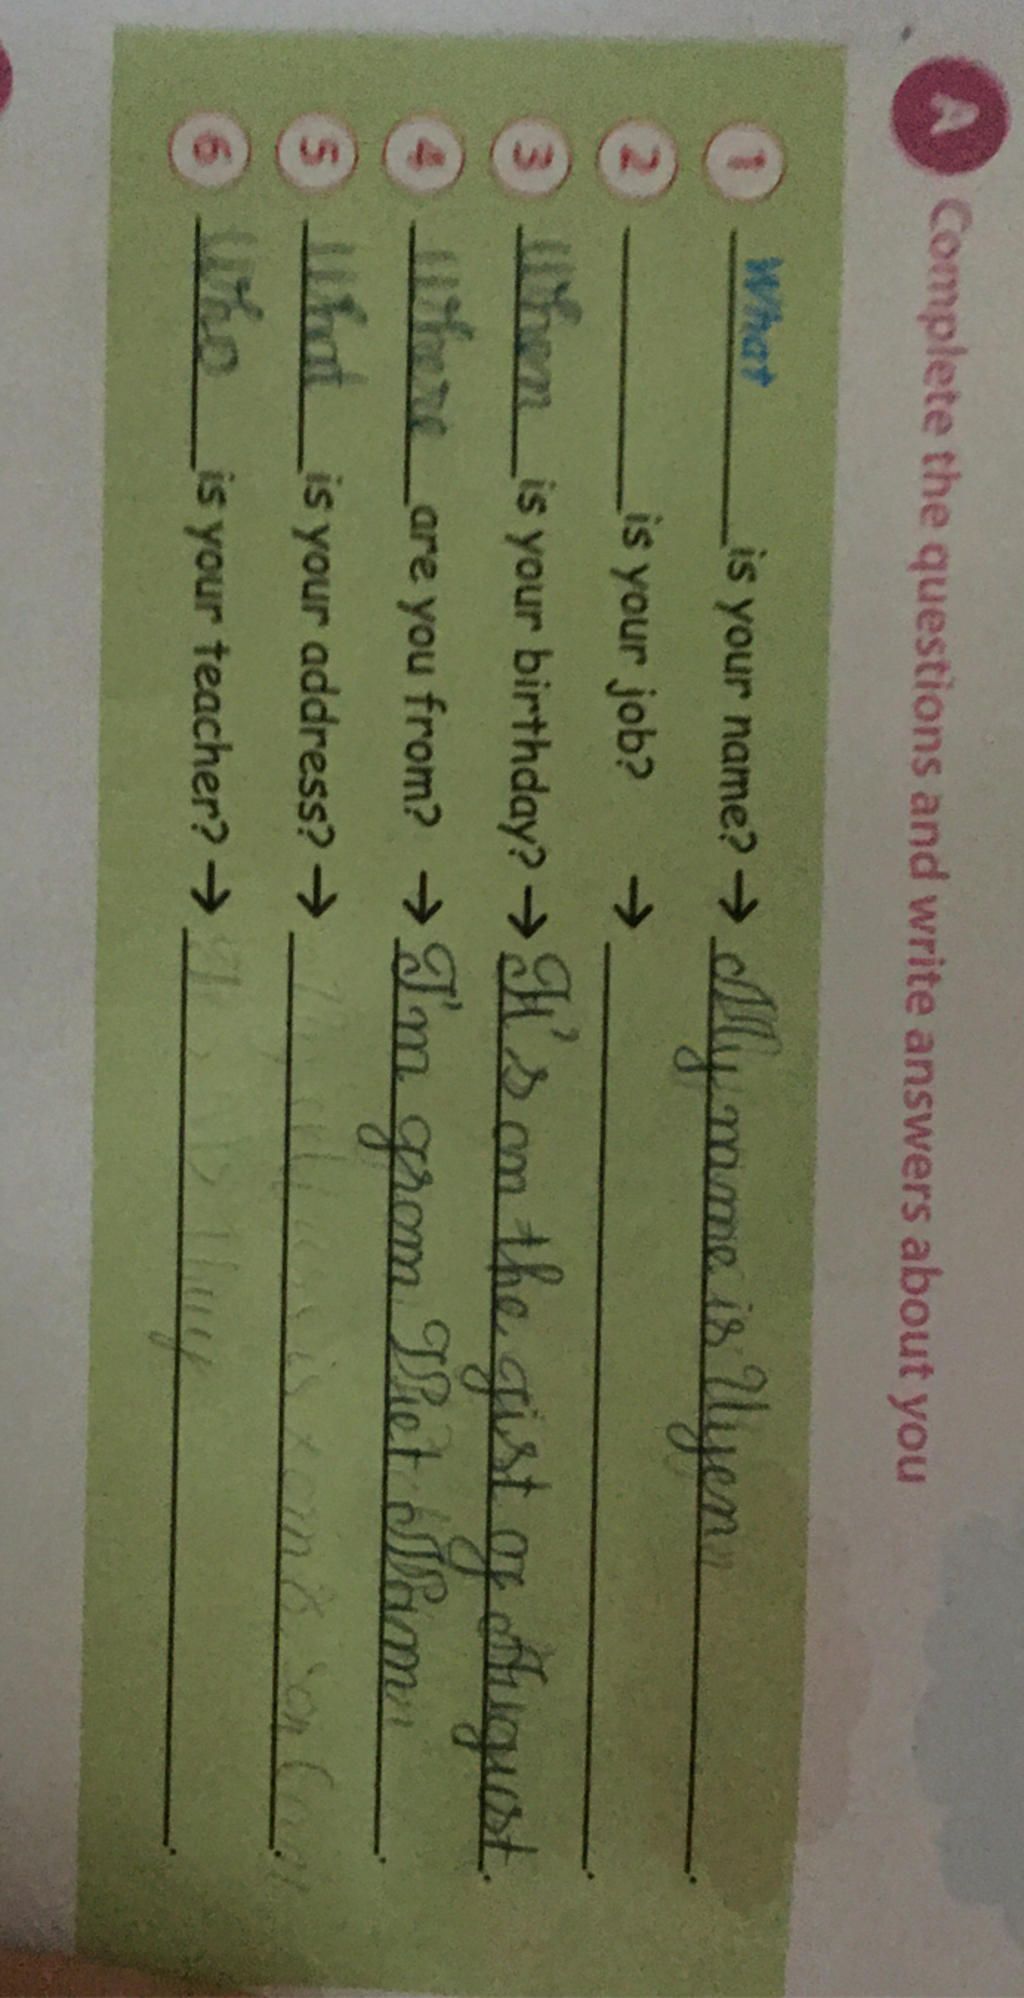 A Complete the questions and write answers about you
1 What is your name? → My name is Uyen
2 ______ is your job? → ______.
3 When is your birthday? → It's on the gist of August.
4 Where are you from? → I'm grom Thiet Nam.
5 What is your address? → is xom 8 son
6 Who is your teacher? → is Thuy.